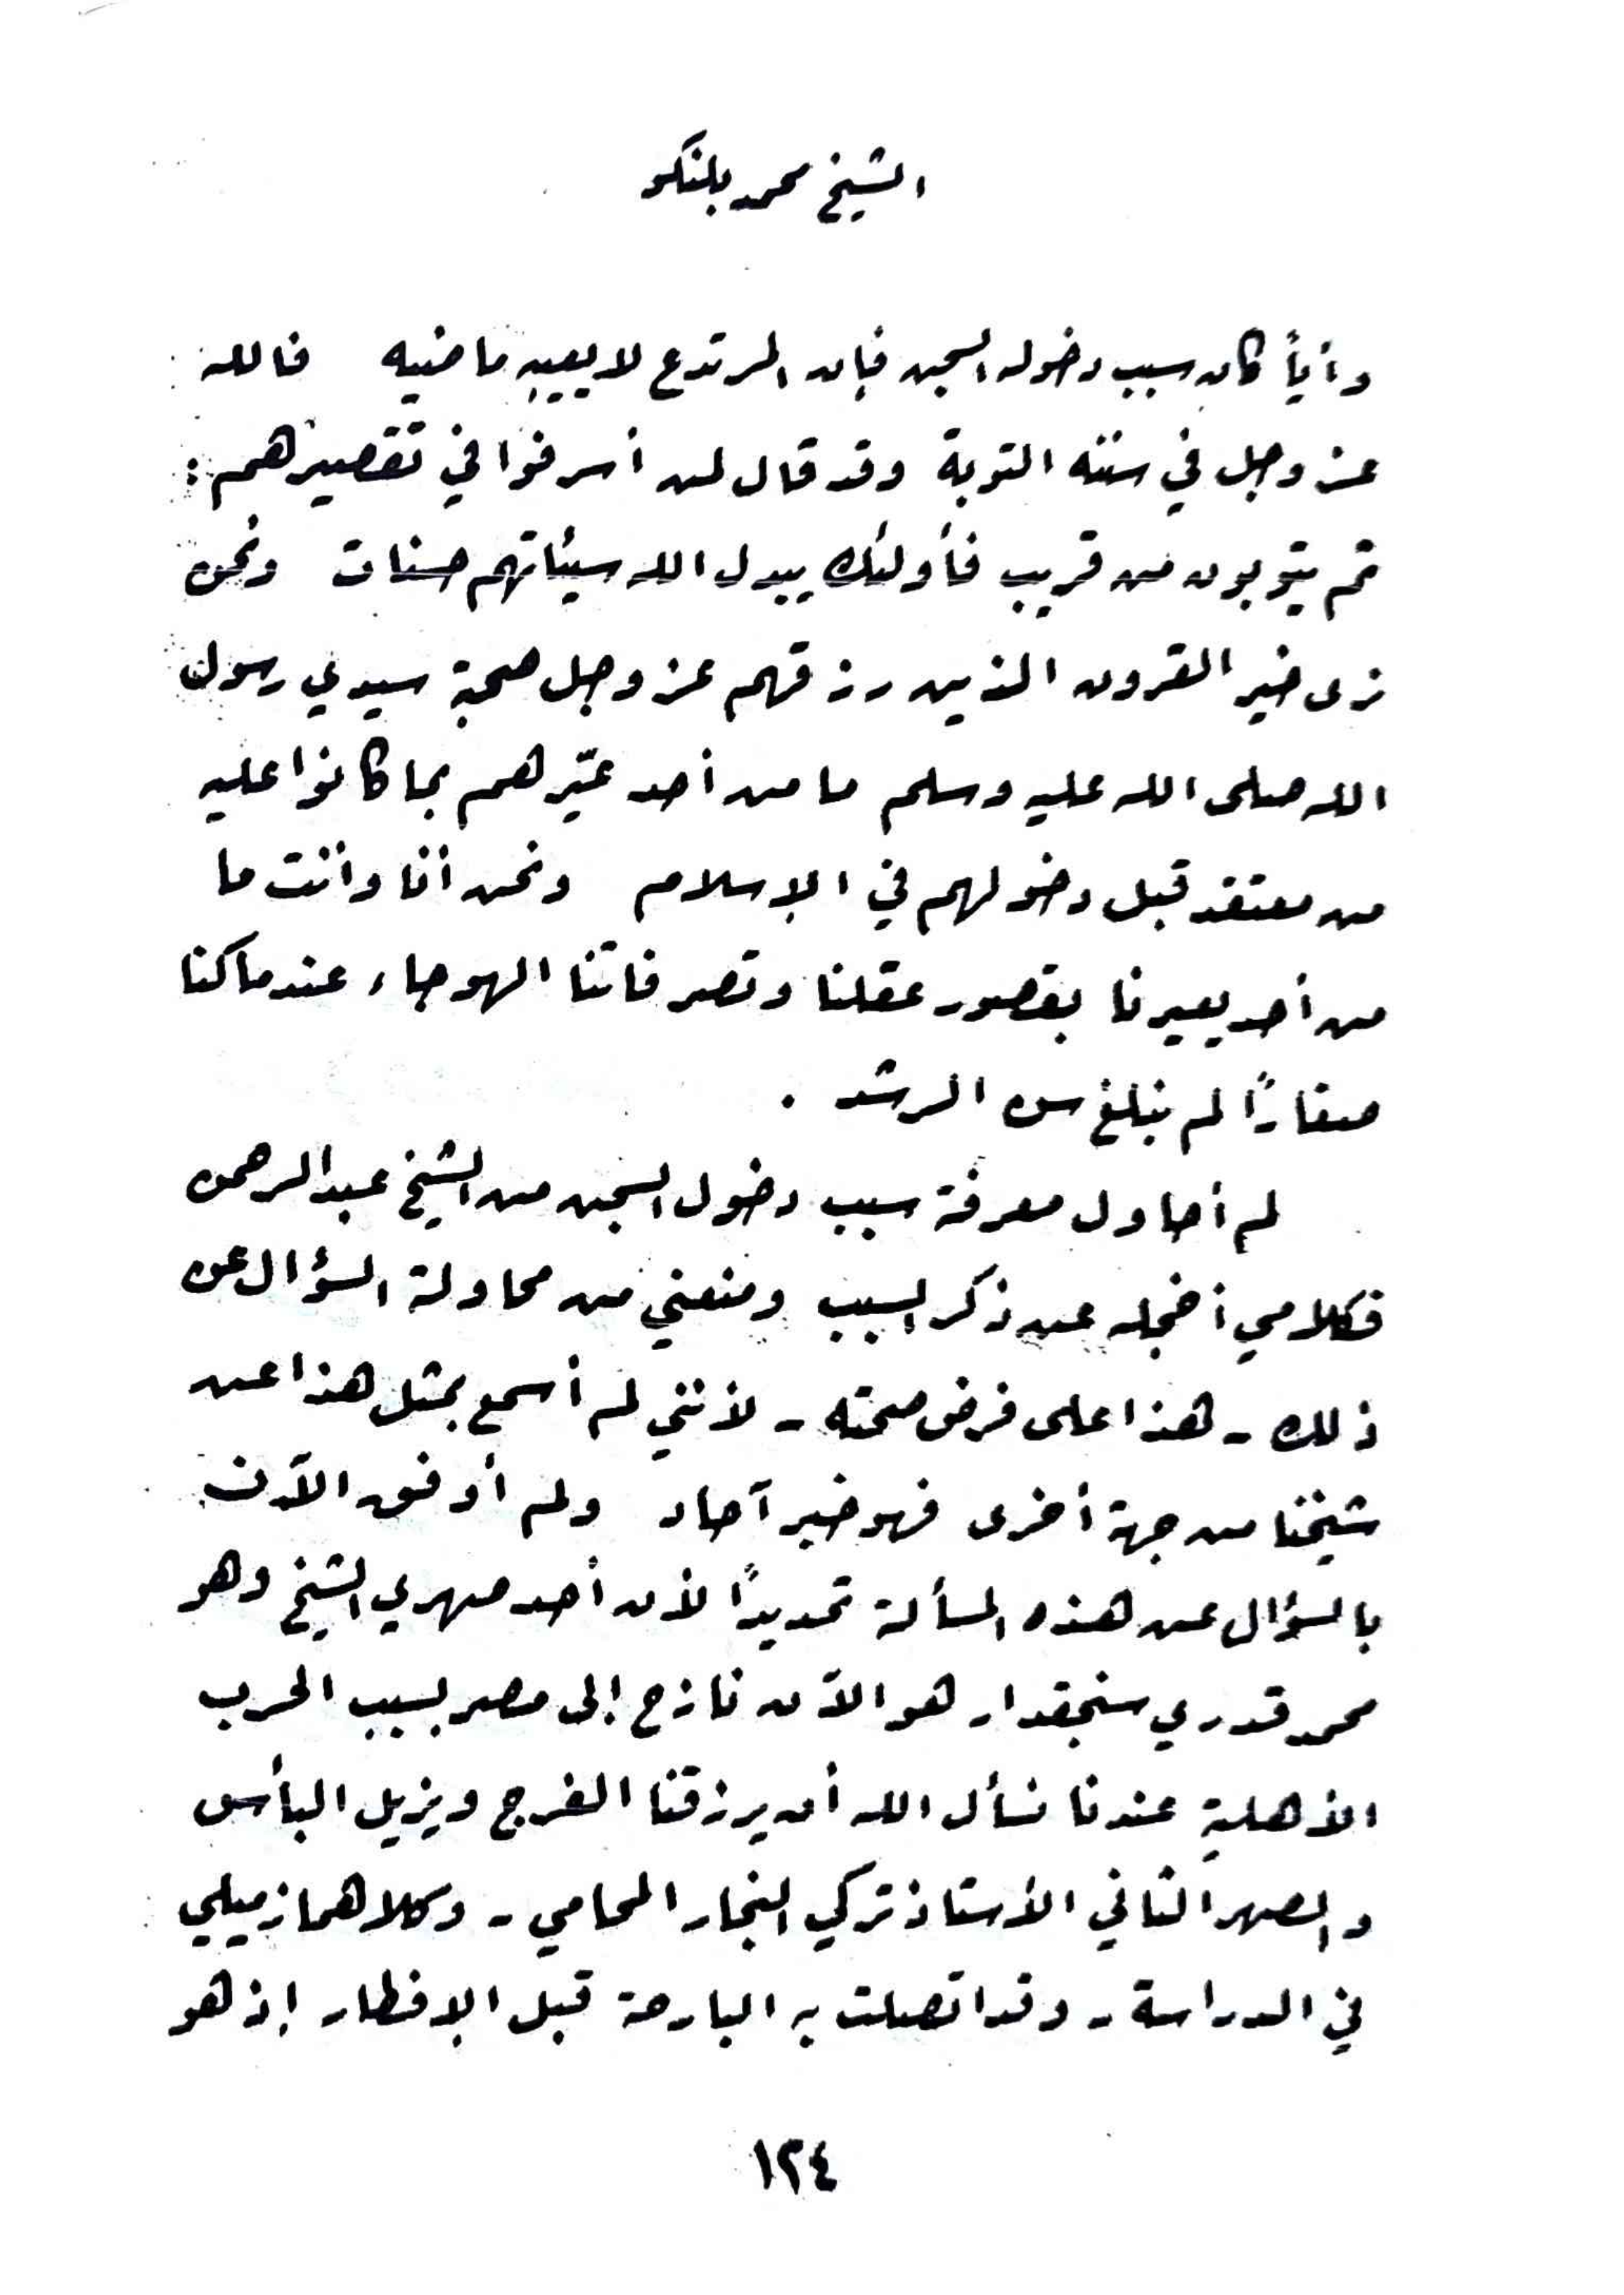 الشيخ محمد بلنكو
وأياً كان سبب دخوله السجن فإن المرتدع لا يعيبه ماضيه فالله
عز وجل في سننه التوبة وقد قال لمن أسرفوا في تقصيرهم :
ثم يتوبون من قريب فأولئك يبدل الله سيئاتهم حسنات ونحن
نرى خير القرون الذين رزقهم عز وجل صحبة سيدي رسول
الله صلى الله عليه وسلم ما من أحد عيّرهم بما كانوا عليه
من معتقد قبل دخولهم في الإسلام ونحن أنا وأنت ما
من أحد يعيرنا بقصور عقلنا وتصرفاتنا الهوجاء عندما كنا
صغاراً لم نبلغ سن الرشد .
لم أحاول معرفة سبب دخول السجن من الشيخ عبد الرحمن
فكلامي أخجله عن ذكر السبب ومنعني من محاولة السؤال عن
ذلك - هذا على فرض صحته - لأنني لم أسمع بمثل هذا عن
شيخنا من جهة أخرى فهو خبر آحاد ولم أوفق الآن
بالسؤال عن هذه المسألة تحديداً لأن أحد صهري الشيخ وهو
محمد قدري سنجقدار هو الآن نازح إلى مصر بسبب الحرب
الأهلية عندنا نسأل الله أن يرزقنا الفرج ويزيل البأس
والصهر الثاني الأستاذ تركي النجار المحامي - وكلاهما زميلي
في الدراسة - وقد اتصلت به البارحة قبل الإفطار إذ هو
١٢٤